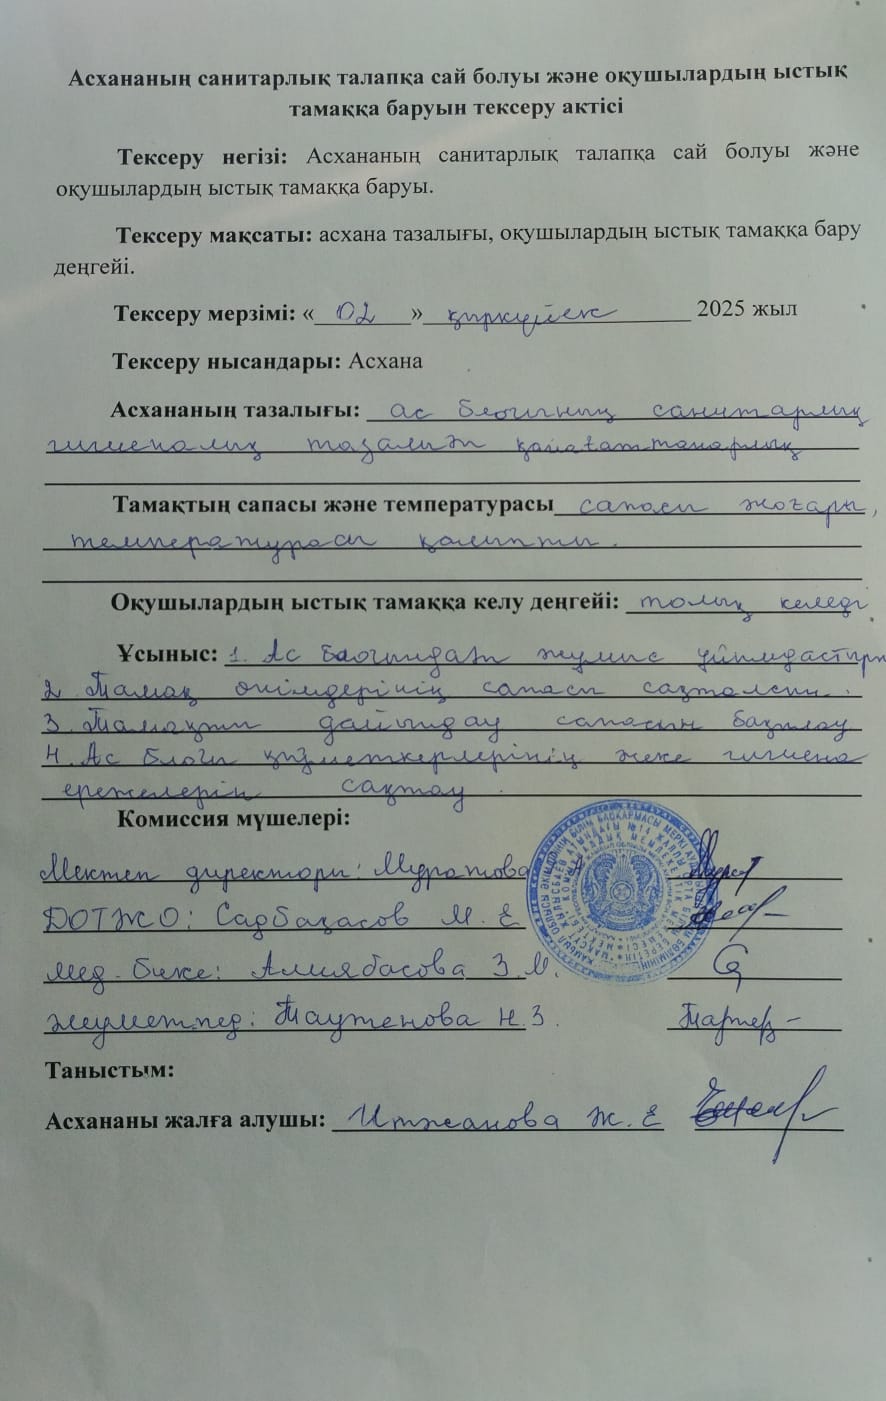 Асхананың санитарлық талапқа сай болуы және оқушылардың ыстық
тамаққа баруын тексеру актісі
Тексеру негізі: Асхананың санитарлық талапқа сай болуы және
оқушылардың ыстық тамаққа баруы.
Тексеру мақсаты: асхана тазалығы, оқушылардың ыстық тамаққа бару
деңгейі.
Тексеру мерзімі: «02» қыркүйек 2025 жыл
Тексеру нысандары: Асхана
Асхананың тазалығы: ас блогының санитарлық
гигиеналық тазалығы қанағаттанарлық
Тамақтың сапасы және температурасы сапасы жоғары,
температурасы қалыпты.
Оқушылардың ыстық тамаққа келу деңгейі: толық келеді
Ұсыныс: 1. Ас блогындағы жұмыс
2. Тамақ өнімдерінің сапасы сақталсын.
3. Тамақты дайындау сапасын бақылау
4. Ас блогы қызметкерлерінің жеке гигиена
ережелерін сақтау.
Комиссия мүшелері:
Мектеп директоры: Муратова
ДОТЖО: М. Е
мед-бике: З.М.
Таутенова Н.З.
Таныстым:
Асхананы жалға алушы: Итжанова Ж. Е